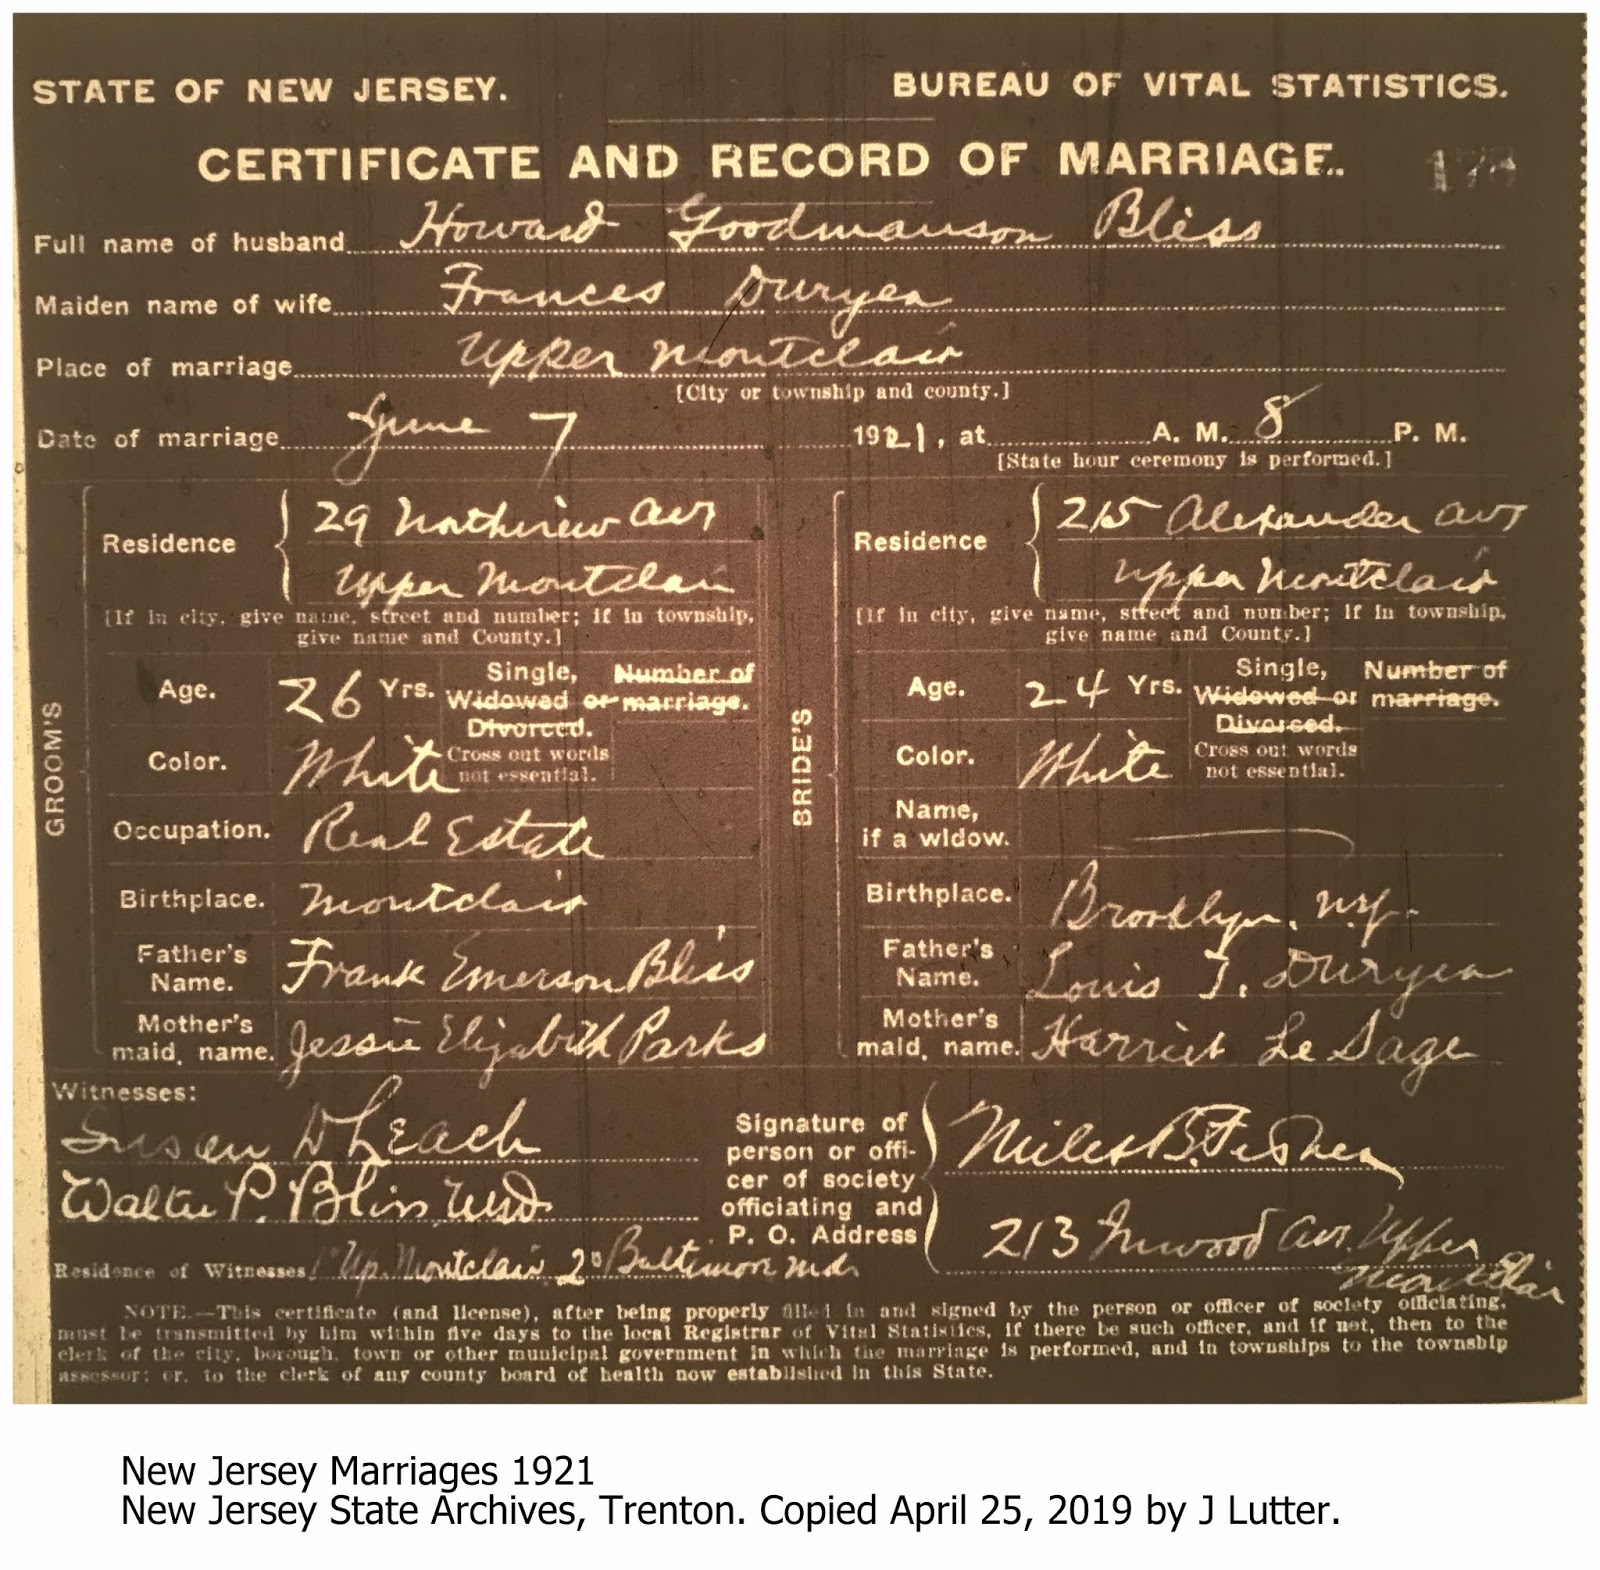 STATE OF NEW JERSEY. BUREAU OF VITAL STATISTICS.
CERTIFICATE AND RECORD OF MARRIAGE.
Full name of husband Howard Goodmanson Bliss
Maiden name of wife Frances Duryea
Place of marriage Upper Montclair
[City or township and county.]
Date of marriage June 7 1921, at A. M. 8 P. M.
[State hour ceremony is performed.]
GROOM'S
Residence 29 Northview Ave
Upper Montclair
[If in city, give name, street and number; if in township,
give name and County.]
Age. 26 Yrs. Single, Widowed or Divorced. Number of marriage.
Color. White Cross out words not essential.
Occupation. Real Estate
Birthplace. Montclair
Father's Name. Frank Emerson Bliss
Mother's maid. name. Jessie Elizabeth Parks
BRIDE'S
Residence 215 Alexander Ave
Upper Montclair
[If in city, give name, street and number; if in township,
give name and County.]
Age. 24 Yrs. Single, Widowed or Divorced. Number of marriage.
Color. White Cross out words not essential.
Name, if a widow.
Birthplace. Brooklyn. N.Y.
Father's Name. Louis T. Duryea
Mother's maid. name. Harriet Le Sage
Witnesses:
Susan D Leach
Walter P. Bliss
Residence of Witnesses 1° Up. Montclair 2° Baltimore Md.
Signature of person or officer of society officiating and P. O. Address
Miles B. Fisher
213 Inwood Ave. Upper
Montclair
NOTE.—This certificate (and license), after being properly filled in and signed by the person or officer of society officiating,
must be transmitted by him within five days to the local Registrar of Vital Statistics, if there be such officer, and if not, then to the
clerk of the city, borough, town or other municipal government in which the marriage is performed, and in townships to the township
assessor; or, to the clerk of any county board of health now established in this State.
New Jersey Marriages 1921
New Jersey State Archives, Trenton. Copied April 25, 2019 by J Lutter.